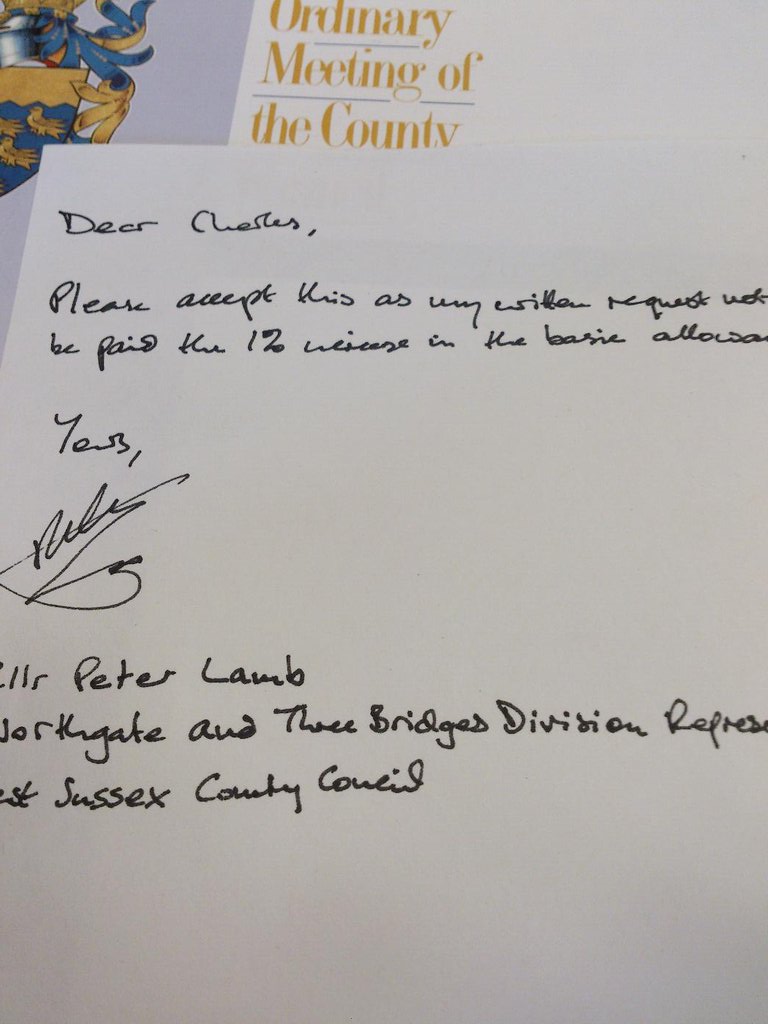 Ordinary
Meeting of
the County
Dear Charles,
Please accept this as my written request not
be paid the 1% increase in the basic allowa
Yours,
Cllr Peter Lamb
Northgate and Three Bridges Division Represe
est Sussex County Council